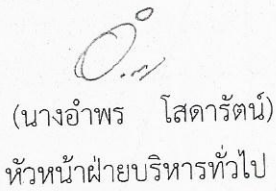 (นางอำพร โสดารัตน์)
หัวหน้าฝ่ายบริหารทั่วไป